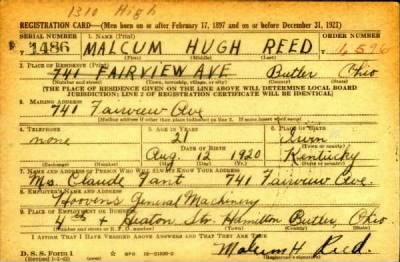 1310 High
REGISTRATION CARD—(Men born on or after February 17, 1897 and on or before December 31, 1921)
SERIAL NUMBER 1. NAME (Print) ORDER NUMBER
T 1486 MALCUM HUGH REED 
(First) (Middle) (Last)
2. PLACE OF RESIDENCE (Print)
741 FAIRVIEW AVE Butler Ohio
(Number and street) (Town, township, village, or city) (County) (State)
[THE PLACE OF RESIDENCE GIVEN ON THE LINE ABOVE WILL DETERMINE LOCAL BOARD
JURISDICTION; LINE 2 OF REGISTRATION CERTIFICATE WILL BE IDENTICAL]
3. MAILING ADDRESS
741 Fairview Ave
[Mailing address if other than place indicated on line 2. If same insert word same]
4. TELEPHONE 5. AGE IN YEARS 6. PLACE OF BIRTH
none 21
DATE OF BIRTH
Aug. 12 1920 Kentucky
(Exchange) (Number) (Mo.) (Day) (Yr.) (State or country)
7. NAME AND ADDRESS OF PERSON WHO WILL ALWAYS KNOW YOUR ADDRESS
Ms Claude Tant 741 Fairview Ave
8. EMPLOYER'S NAME AND ADDRESS
Hoovens General Machinery
9. PLACE OF EMPLOYMENT OR BUSINESS
4th & Heaton Sts. Hamilton Butler, Ohio.
(Number and street or R. F. D. number) (Town) (County) (State)
I AFFIRM THAT I HAVE VERIFIED ABOVE ANSWERS AND THAT THEY ARE TRUE.
D. S. S. Form 1
Malcum H. Reed.